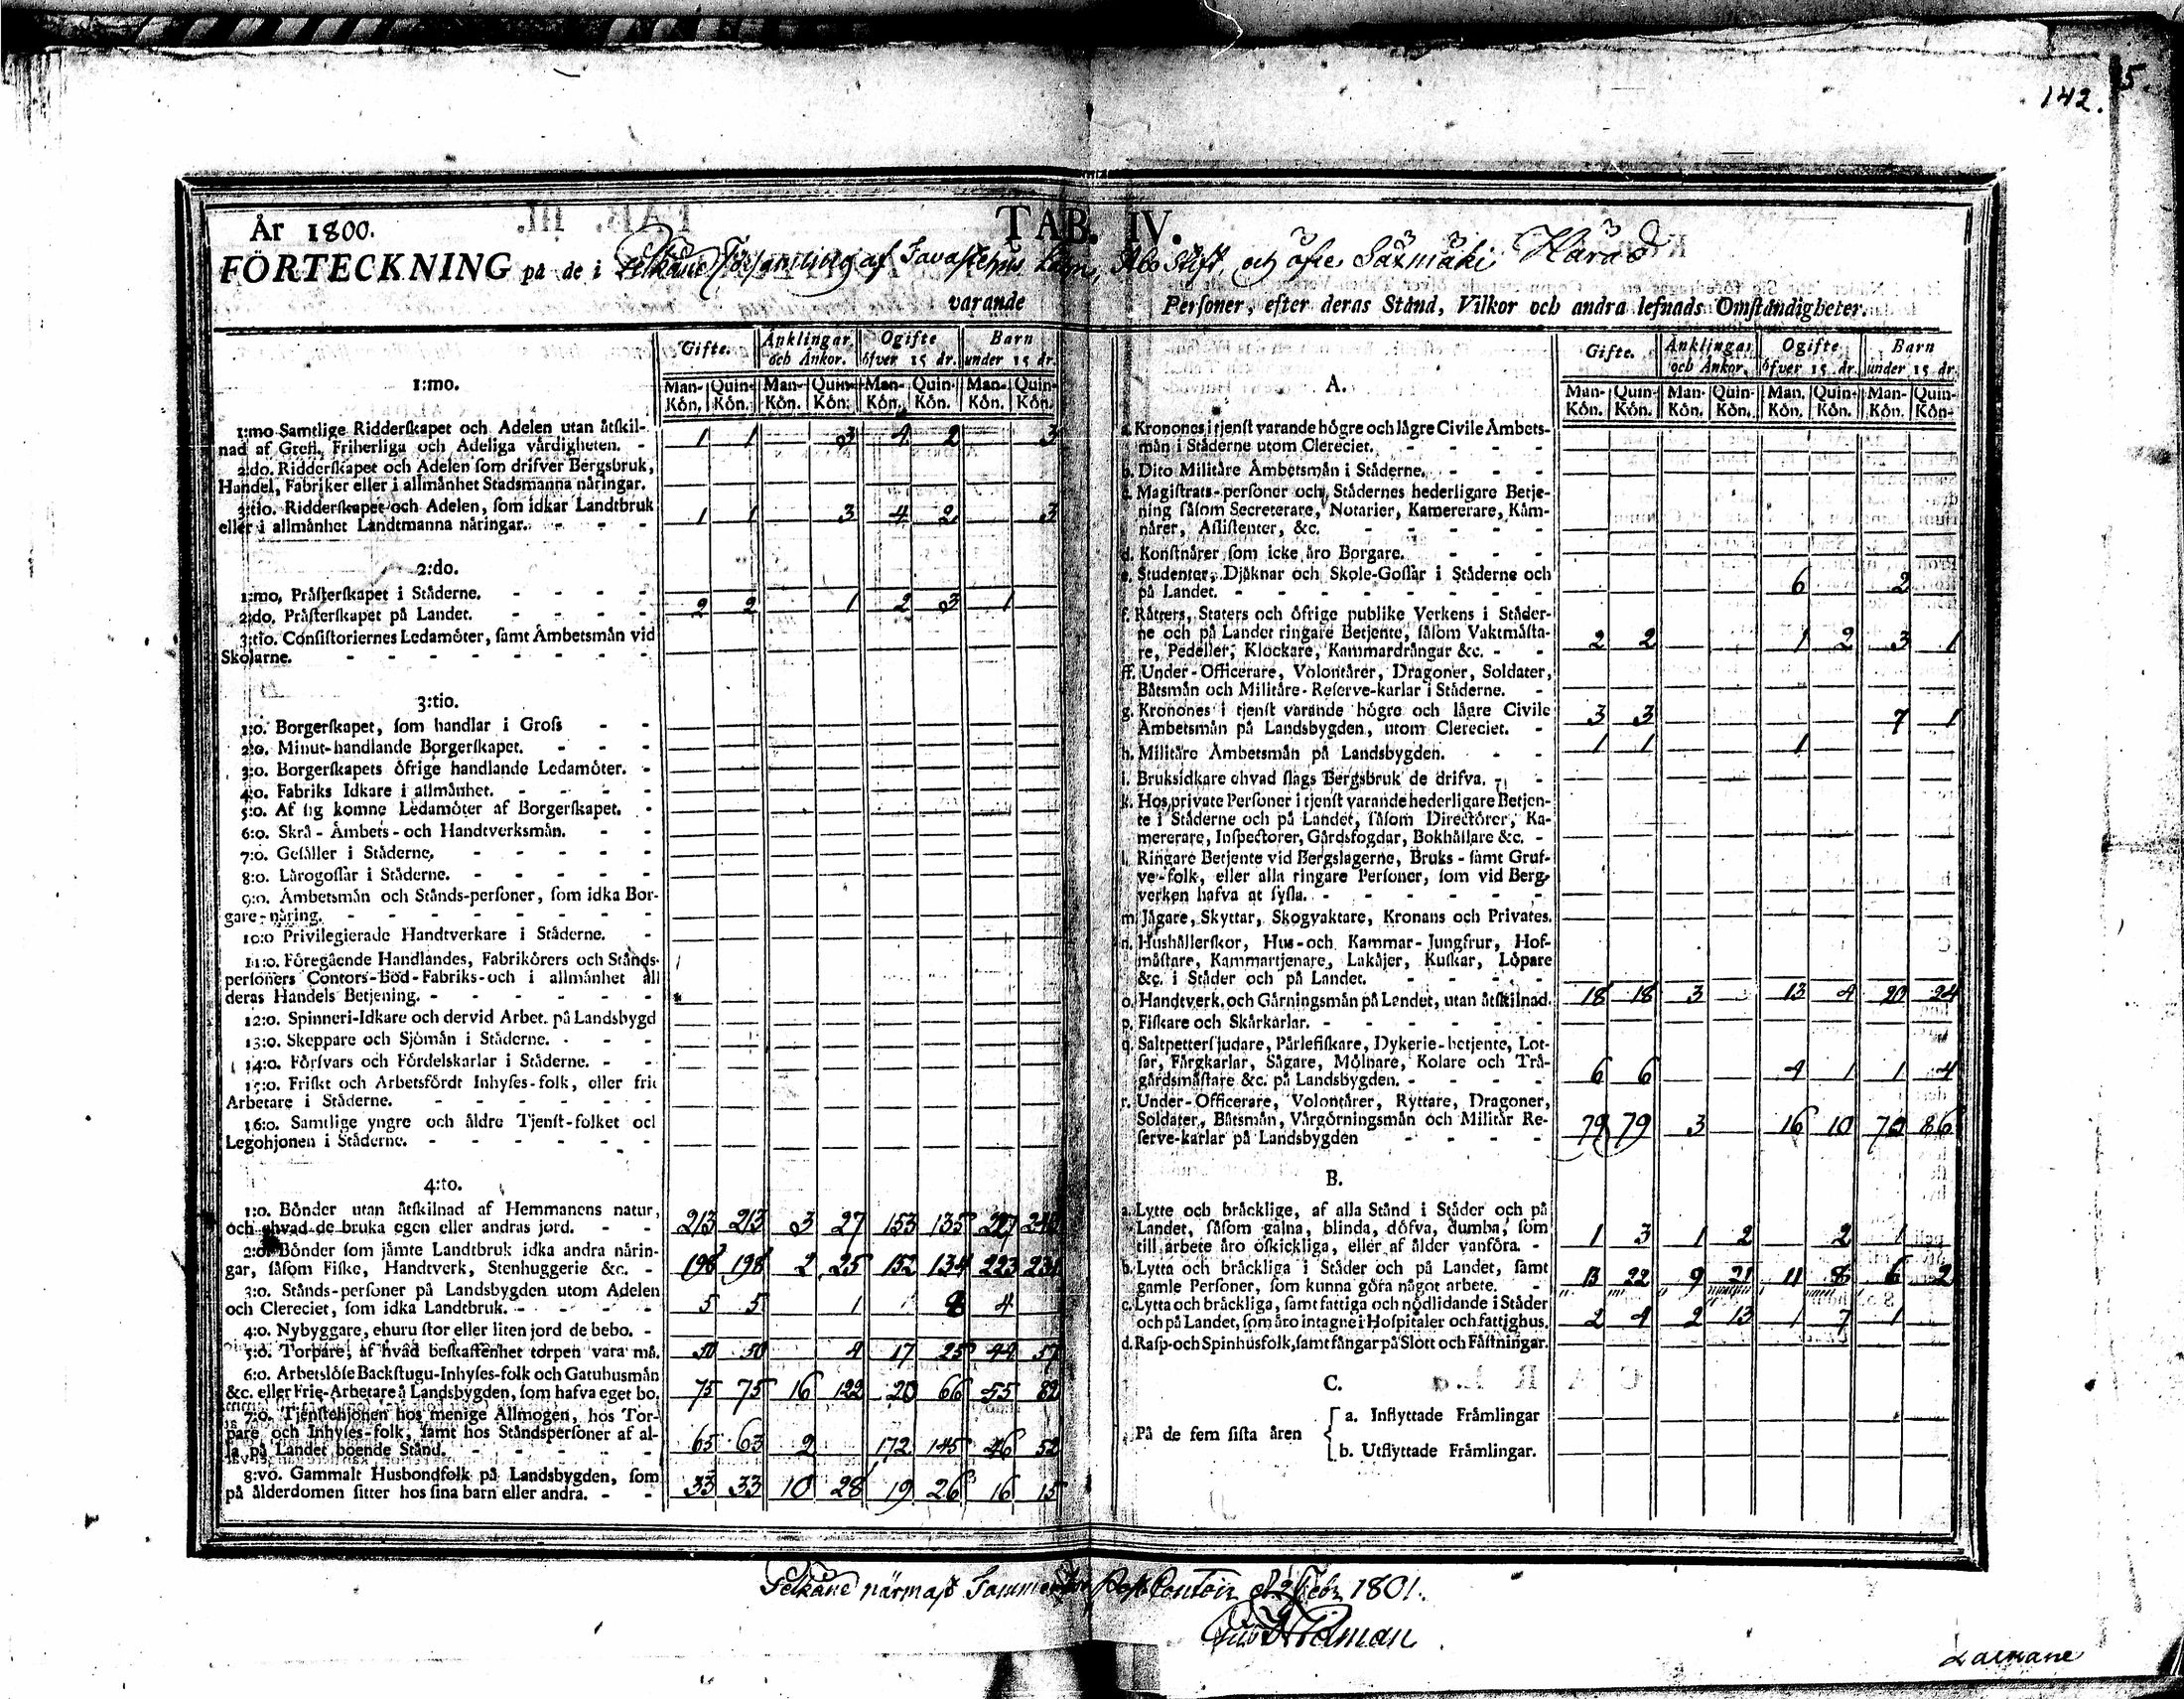 5.
142.
År 1800.
TAB. IV.
FÖRTECKNING på de i Pelkäne Församling af Tavastehus Län, Åbo Stift och öfre Säxmäki Härad
varande Personer, efter deras Stånd, Vilkor och andra lefnads Omståndigheter.
Gifte. Ånklingar och Ånkor. Ogifte öfver 15 år. Barn under 15 år.
Man-Kön. Quin-Kön. Man-Kön. Quin-Kön. Man-Kön. Quin-Kön. Man-Kön. Quin-Kön.
1:mo.
1:mo Samtlige Ridderskapet och Adelen utan åtskil-
nad af Grefl. Friherliga och Adeliga vårdigheten. - 1 1 3 4 2 3
2:do. Ridderskapet och Adelen som drifver Bergsbruk,
Handel, Fabriker eller i allmånhet Stadsmanna nåringar.
3:tio. Ridderskapet och Adelen, som idkar Landtbruk
eller i allmånhet Landtmanna nåringar. - - - 1 1 3 4 2 3
2:do.
1:mo. Pråsterskapet i Ståderne. - - - -
2:do. Pråsterskapet på Landet. - - - - 2 2 1 2 3 1
3:tio. Consistoriernes Ledamöter, samt Åmbetsmån vid
Skolarne. - - - - - - -
3:tio.
1:o. Borgerskapet, som handlar i Gross - -
2:o. Minut-handlande Borgerskapet. - - -
3:o. Borgerskapets öfrige handlande Ledamöter. -
4:o. Fabriks Idkare i allmånhet. - - - -
5:o. Af sig komne Ledamöter af Borgerskapet. -
6:o. Skrå-Åmbets-och Handtverksmån. - -
7:o. Gesåller i Ståderne. - - - - -
8:o. Lårogossar i Ståderne. - - - - -
9:o. Åmbetsmån och Stånds-personer, som idka Bor-
gare-nåring. - - - - - - -
10:o Privilegierade Handtverkare i Ståderne. -
11:o. Föregående Handlandes, Fabrikörers och Stånds-
personers Contors-bod-Fabriks-och i allmånhet all
deras Handels Betjening. - - - - - -
12:o. Spinneri-Idkare och dervid Arbet. på Landsbygd
13:o. Skeppare och Sjömån i Ståderne. - - -
14:o. Försvars och Fördelskarlar i Ståderne. - -
15:o. Friskt och Arbetsfördt Inhyses-folk, eller frie
Arbetare i Ståderne. - - - - - -
16:o. Samtlige yngre och åldre Tjenst-folket och
Legohjonen i Ståderne. - - - - - -
4:to.
1:o. Bönder utan åtskilnad af Hemmanens natur,
och ehvad de bruka egen eller andras jord. - - 213 213 3 27 153 135 227
2:o. Bönder som jåmte Landtbruk idka andra nårin-
gar, såsom Fiske, Handtverk, Stenhuggerie &c. - 198 198 2 25 152 134 223 231
3:o. Stånds-personer på Landsbygden utom Adelen
och Clereciet, som idka Landtbruk. - - - - 5 5 1 8 4
4:o. Nybyggare, ehuru stor eller liten jord de bebo. -
5:o. Torpare, af hvad beskaffenhet torpen vara må. 50 50 4 17 25 44 57
6:o. Arbetslöse Backstugu-Inhyses-folk och Gatuhusmån
&c. eller Frie-Arbetare å Landsbygden, som hafva eget bo. 75 75 16 122 20 66 55 82
7:o. Tjenstehjonen hos menige Allmogen, hos Tor-
pare och Inhyses-folk, samt hos Ståndspersoner af al-
la på Landet boende Stånd. - - - - - 65 63 2 172 145 46 52
8:vo. Gammalt Husbondfolk på Landsbygden, som
på ålderdomen sitter hos sina barn eller andra. - - 33 33 10 28 19 26 16 15
Gifte. Ånklingar och Ånkor. Ogifte öfver 15 år. Barn under 15 år.
Man-Kön. Quin-Kön. Man-Kön. Quin-Kön. Man. Kön. Quin-Kön. Man-Kön. Quin-Kön-
A.
a. Kronones i tjenst varande högre och lågre Civile Åmbets-
mån i Ståderne utom Clereciet. - - - -
b. Dito Militåre Åmbetsmån i Ståderne. - - -
c. Magistrats-personer och Stådernes hederligare Betje-
ning såsom Secreterare, Notarier, Kamererare, Kåm-
nårer, Assistenter, &c. - - - - -
d. Konstnårer som icke åro Borgare. - - -
e. Studenter, Djåknar och Skole-Gossar i Ståderne och
på Landet. - - - - - - - 6 2
f. Råtters, Staters och öfrige publike Verkens i Ståder-
ne och på Landet ringare Betjente, såsom Vaktmåsta-
re, Pedeller, Klockare, Kammardrångar &c. - - 2 2 1 2 3 1
ff. Under-Officerare, Volontårer, Dragoner, Soldater,
Båtsmån och Militåre-Reserve-karlar i Ståderne. -
g. Kronones i tjenst varande högre och lågre Civile
Åmbetsmån på Landsbygden, utom Clereciet. - 3 3 7 1
h. Militåre Åmbetsmån på Landsbygden. - - 1 1 1
i. Bruksidkare ehvad slags Bergsbruk de drifva. - -
k. Hos private Personer i tjenst varande hederligare Betjen-
te i Ståderne och på Landet, såsom Directörer, Ka-
mererare, Inspectorer, Gårdsfogdar, Bokhållare &c. -
l. Ringare Betjente vid Bergslagerne, Bruks-samt Gruf-
ve-folk, eller alla ringare Personer, som vid Berg-
verken hafva at syssla. - - - - -
m. Jågare, Skyttar, Skogvaktare, Kronans och Privates.
n. Hushållerskor, Hus-och Kammar-Jungfrur, Hof-
måstare, Kammartjenare, Lakåjer, Kuskar, Löpare
&c. i Ståder och på Landet. - - - -
o. Handtverk. och Gårningsmån på Landet, utan åtskilnad. 18 18 3 13 4 20 24
p. Fiskare och Skårkarlar. - - - - -
q. Saltpettersjudare, Pårlefiskare, Dykerie-betjente, Lot-
sar, Fårgkarlar, Sågare, Mölnare, Kolare och Trå-
gårdsmåstare &c. på Landsbygden. - - - - 6 6 4 1 1 4
r. Under-Officerare, Volontårer, Ryttare, Dragoner,
Soldater, Båtsmån, Vårgörningsmån och Militår Re-
serve-karlar på Landsbygden - - - - 79 79 3 16 10 70 86
B.
a. Lytte och bråcklige, af alla Stånd i Ståder och på
Landet, såsom galna, blinda, döfva, dumba, som
till arbete åro oskickliga, eller af ålder vanföra. - 1 3 1 2 2 1
b. Lytta och bråckliga i Ståder och på Landet, samt
gamle Personer, som kunna göra något arbete. - 13 22 9 21 11 8 6 2
c. Lytta och bråckliga, samt fattiga och nödlidande i Ståder
och på Landet, som åro intagne i Hospitaler och fattighus. 2 4 2 13 1 7 1
d. Rasp-och Spinhusfolk, samt fångar på Slott och Fåstningar.
C.
På de fem sista åren
a. Inflyttade Fråmlingar
b. Utflyttade Fråmlingar.
Pelkäne närmast Post Contoir d. 2 Febr. 1801.